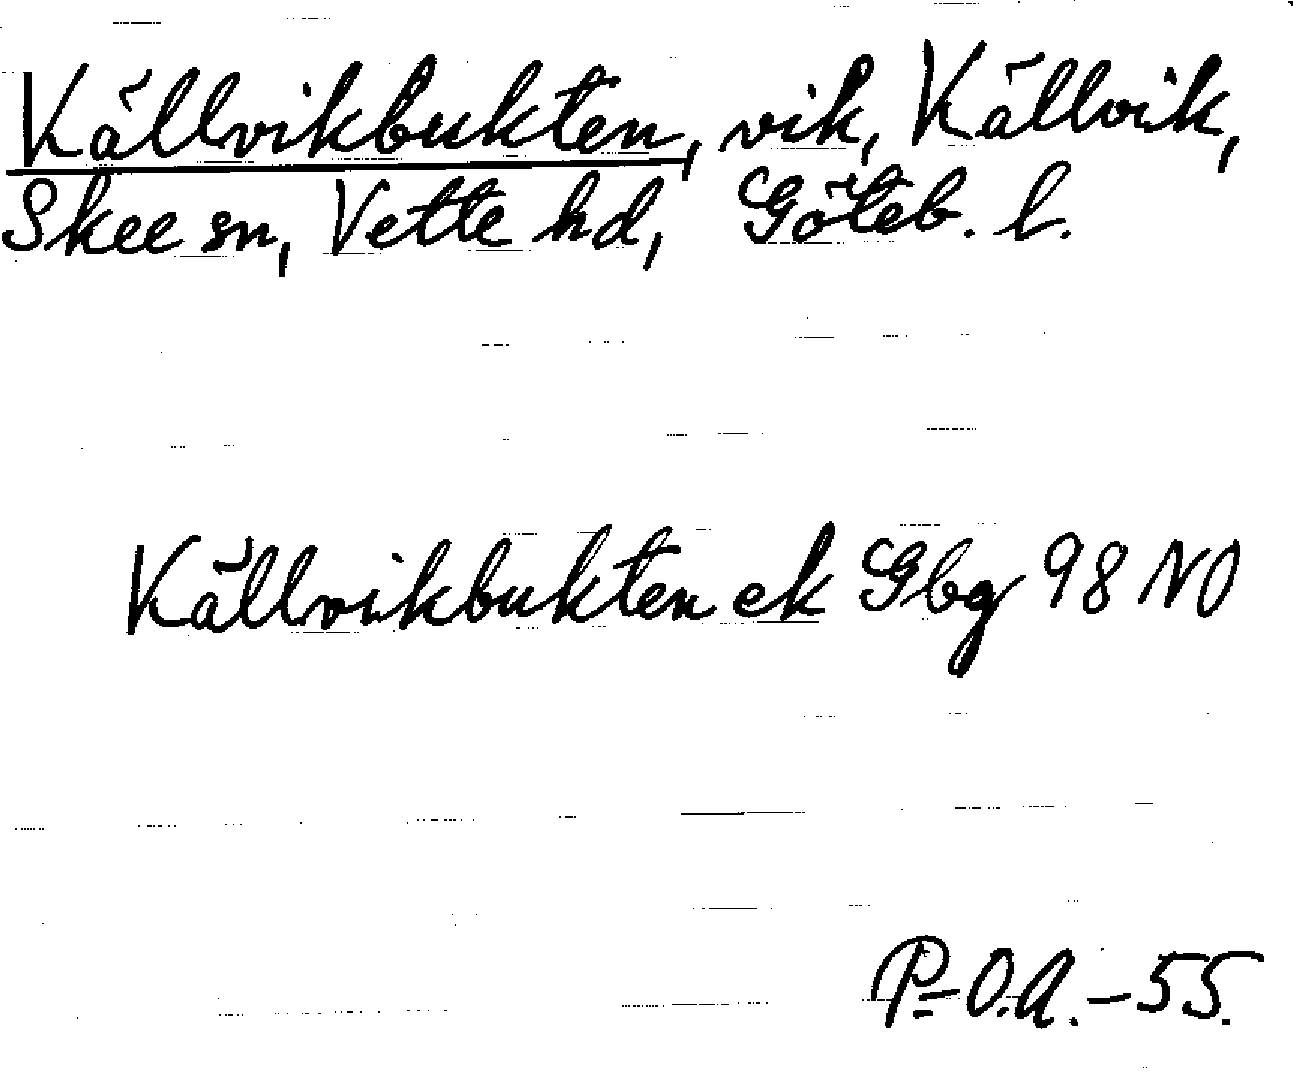 Källvikbukten, vik, Källvik,
Skee sn, Vette hd, Göteb. l.
Källvikbukten ek Gbg 98 NO
P-O.A.-55.